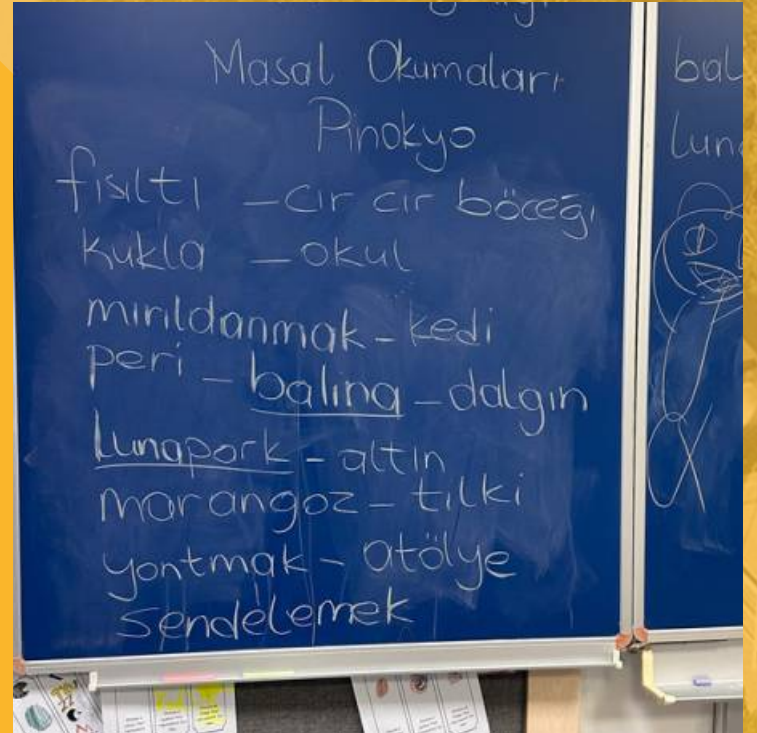 Masal Okumaları
Pinokyo
fısıltı – cır cır böceği
kukla – okul
mırıldanmak – kedi
peri – balina – dalgın
Lunapark – altın
marangoz – tilki
yontmak – atölye
sendelemek